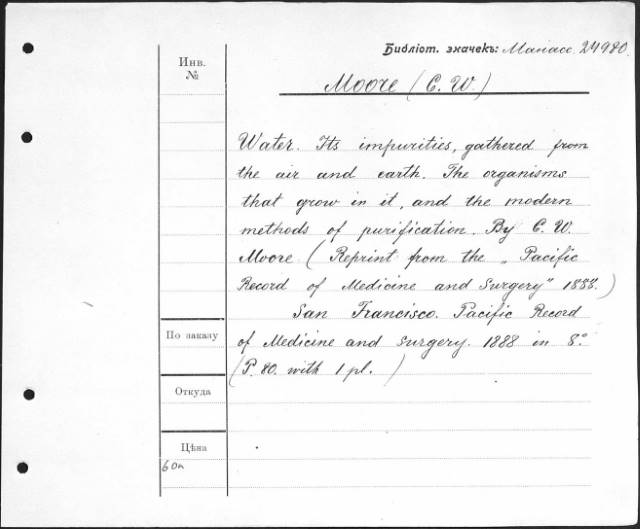 Библіот. значекъ: Манасс 24980.
Инв.
№
Moore (C. W.)
Water. Its impurities, gathered from
the air and earth. The organisms
that grow in it, and the modern
methods of purification. By C. W.
Moore (Reprint from the „Pacific
Record of Medicine and Surgery" 1888.)
San Francisco. Pacific Record
По заказу
of Medicine and Surgery. 1888 in 8°.
(P. 80. with 1 pl. )
Откуда
Цѣна
60к